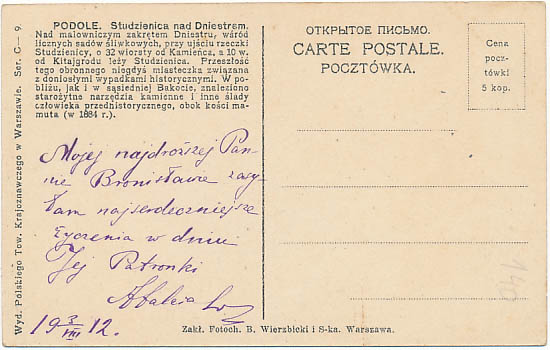 PODOLE. Studzienica nad Dniestrem.
Nad malowniczym zakrętem Dniestru, wśród
licznych sadów śliwkowych, przy ujściu rzeczki
Studzienicy, o 32 wiorsty od Kamieńca, a 10 w.
od Kitajgrodu leży Studzienica. Przeszłość
tego obronnego niegdyś miasteczka związana
z doniosłymi wypadkami historycznymi. W po-
bliżu, jak i w sąsiedniej Bakocie, znaleziono
starożytne narzędzia kamienne i inne ślady
człowieka przedhistorycznego, obok kości ma-
muta (w 1884 r.).
Mojej najdroższej Pan-
nie Bronisławie zasy-
łam najserdeczniejsze
życzenia w dniu
Jej Patronki
19 3/VIII 12.
Wyd. Polskiego Tow. Krajoznawczego w Warszawie. Ser. C — 9.
ОТКРЫТОЕ ПИСЬМО.
CARTE POSTALE.
POCZTÓWKA.
Cena
pocz-
tówki
5 kop.
Zakł. Fotoch. B. Wierzbicki i S-ka. Warszawa.